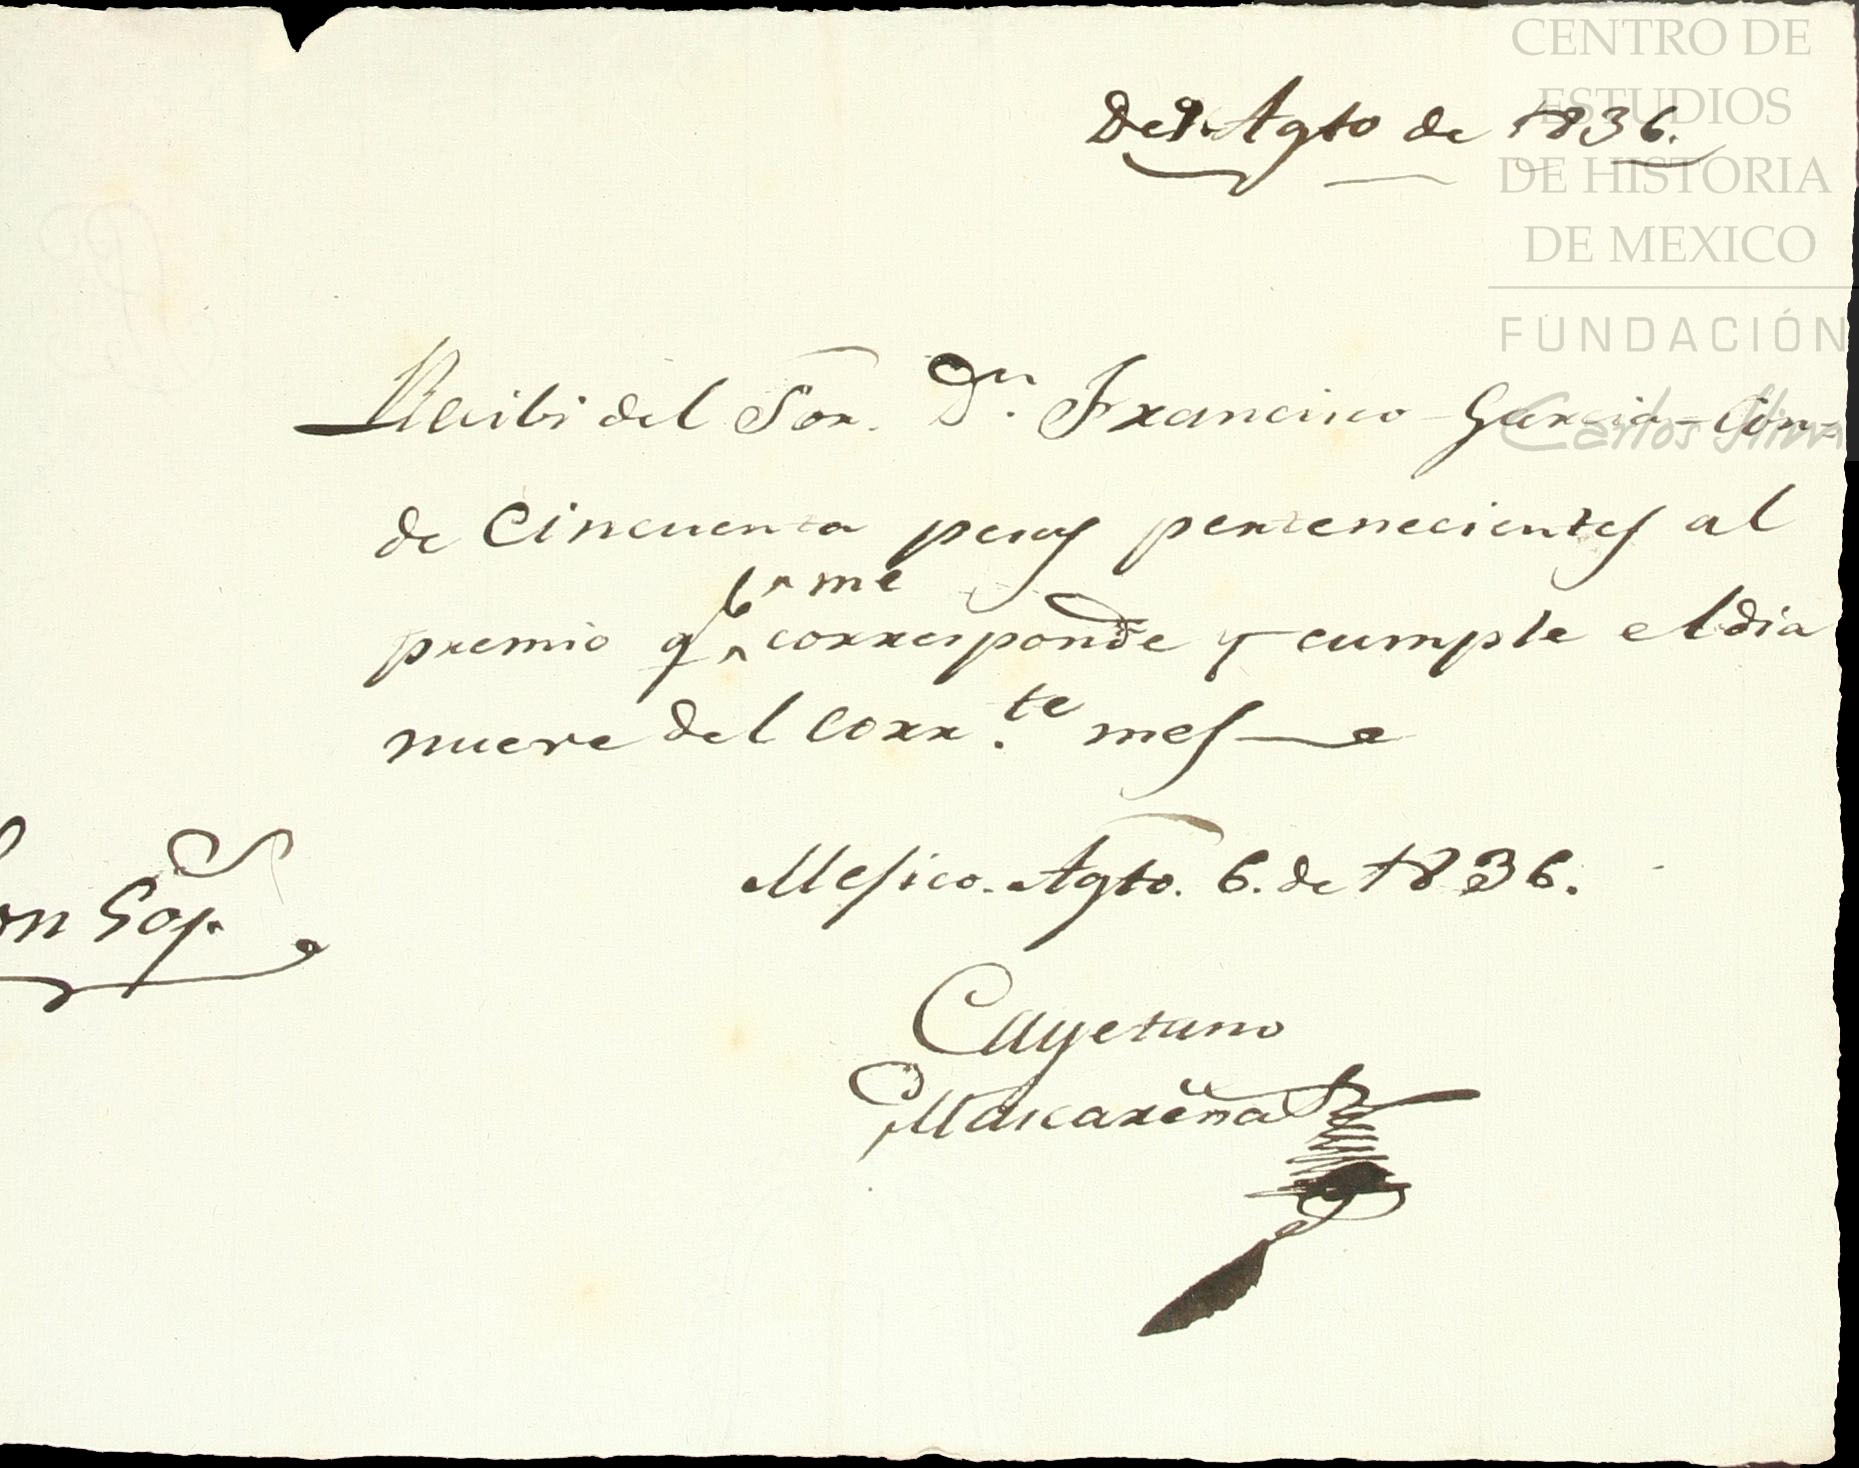 CENTRO DE
ESTUDIOS
DE HISTORIA
DE MEXICO
FUNDACIÓN
Carlos Slim
De 9. Agto de 1836.
Recibi del Sor. Dn. Francisco Garcia-Con-
de Cincuenta pesos pertenecientes al
me
premio q. corresponde y cumple el dia
nueve del Corr.te mes
Mesico. Agto. 6. de 1836.
on 50 p.
Cayetano
Mascareña